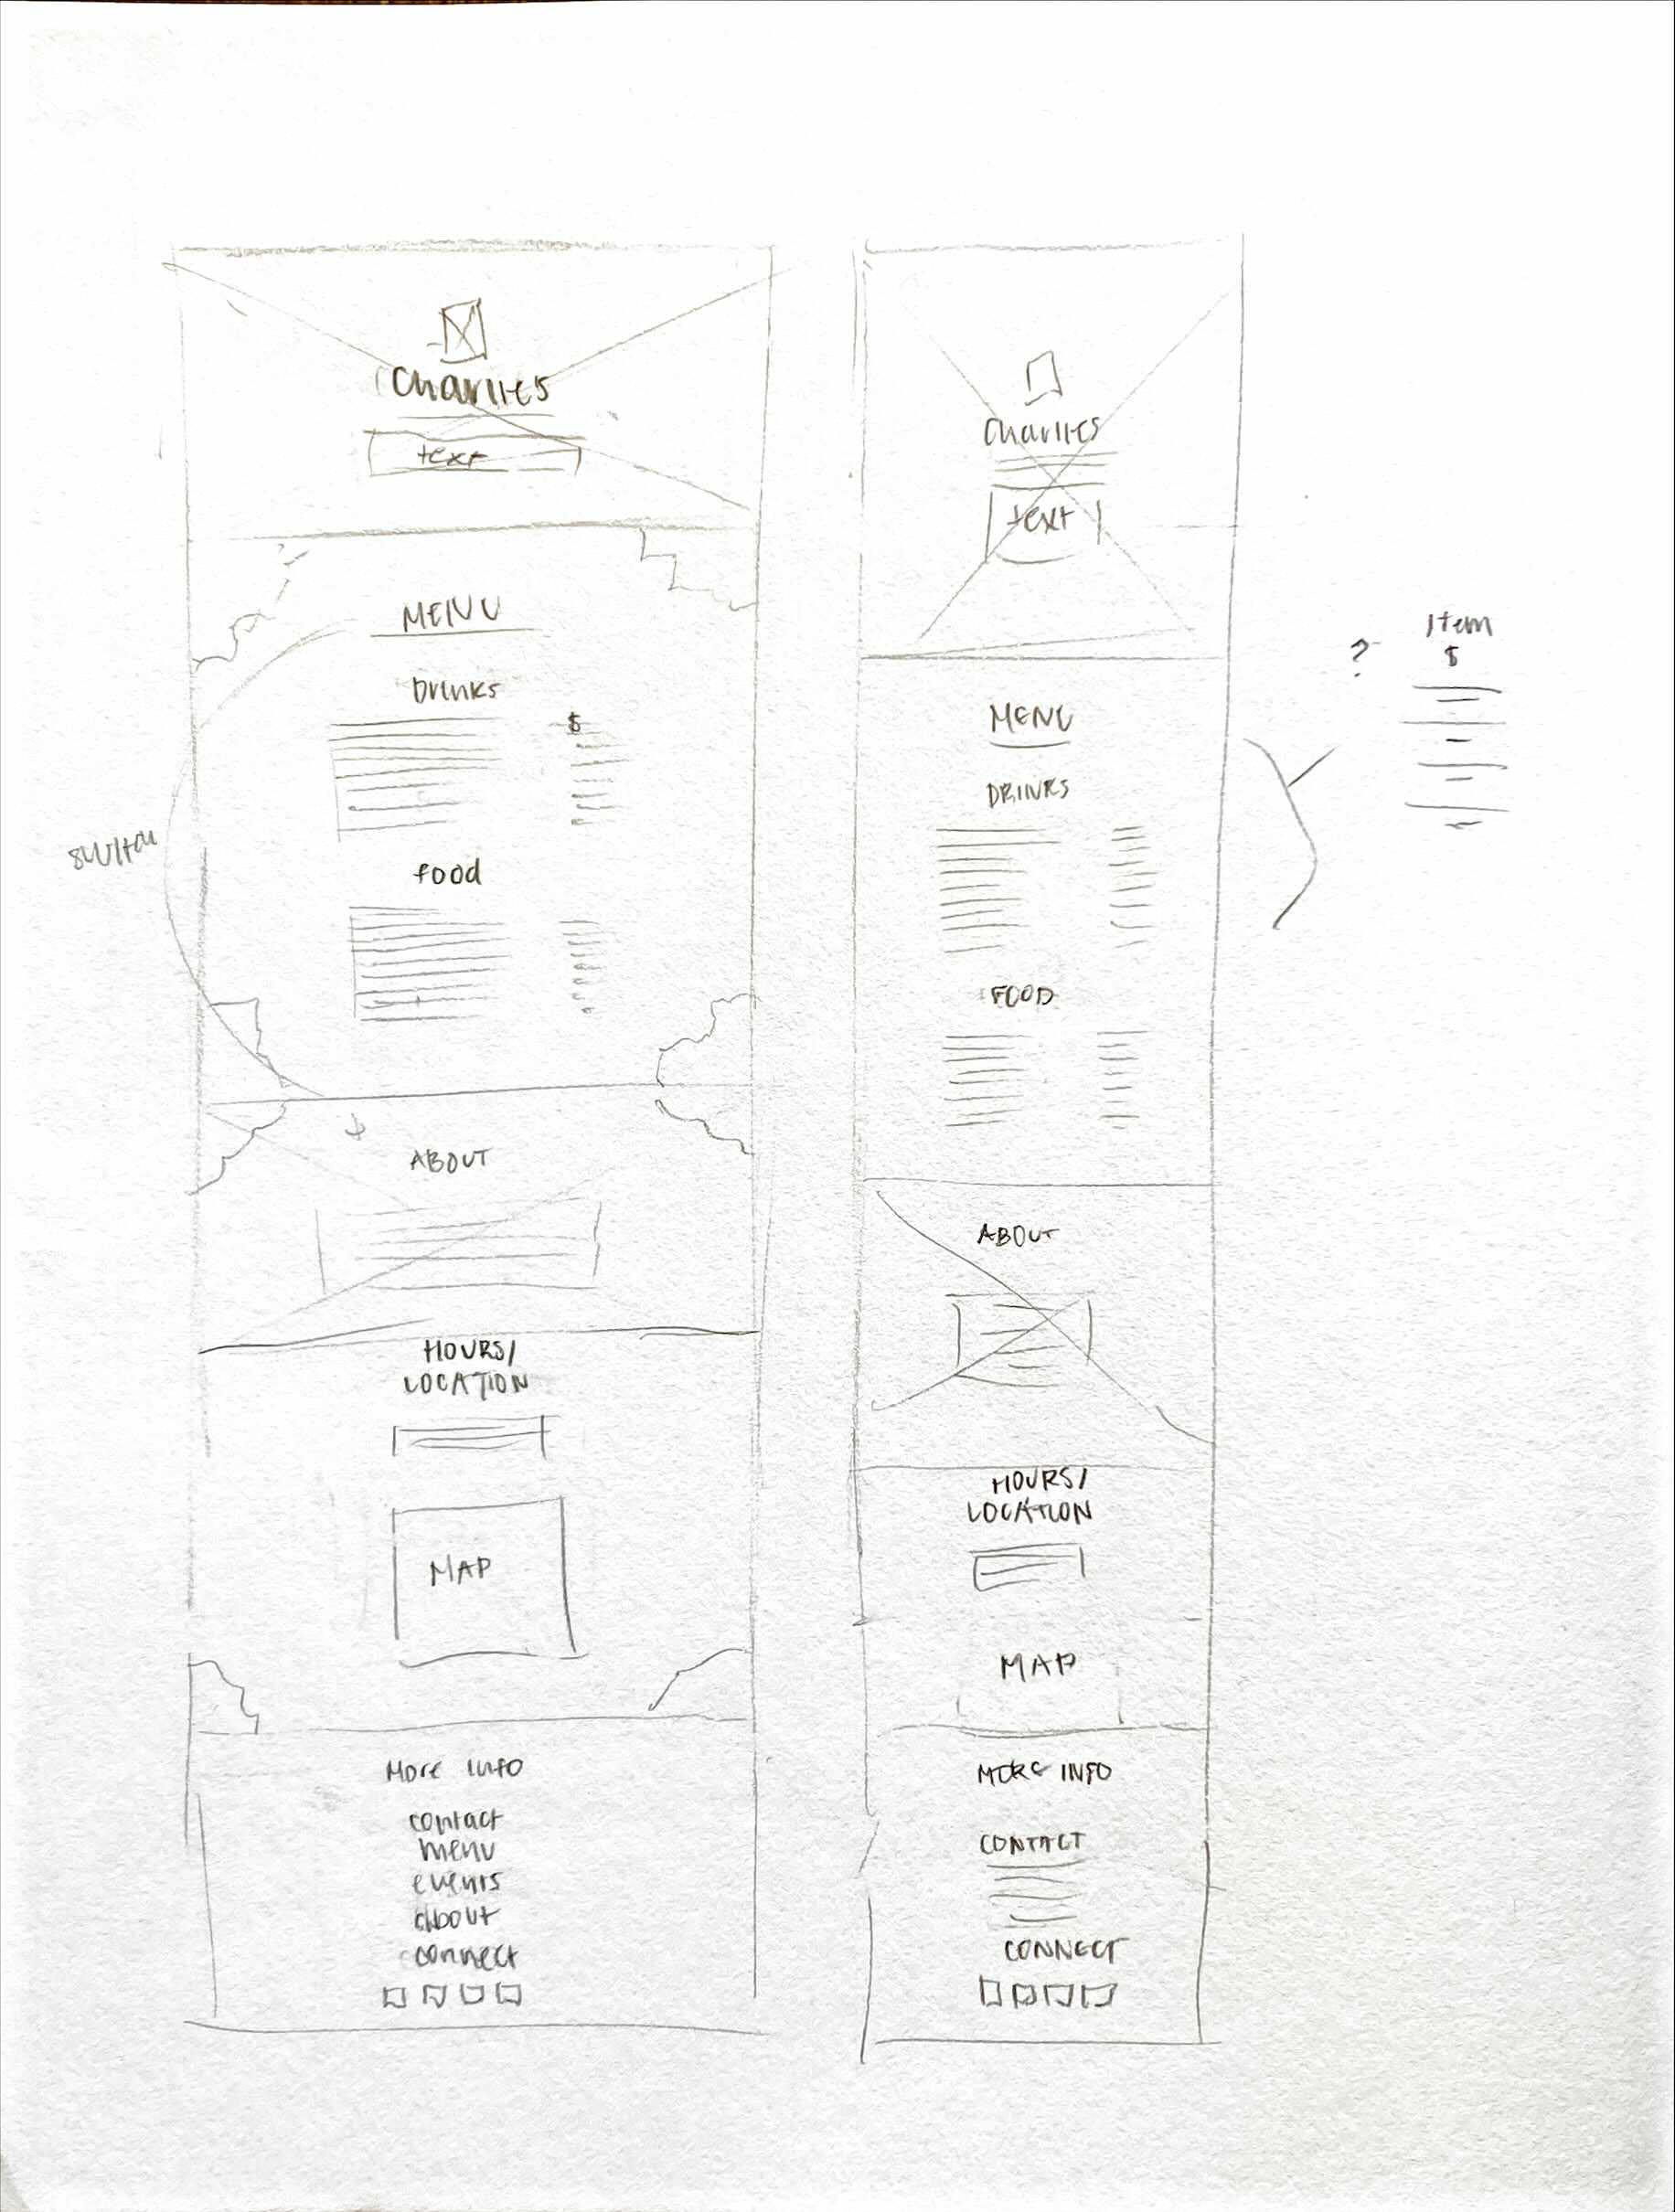 Charlie's
text
MENU
Drinks
$
food
switch
ABOUT
HOURS/
LOCATION
MAP
More info
contact
menu
events
about
connect
Charlies
text
MENU
DRINKS
FOOD
ABOUT
HOURS/
LOCATION
MAP
MORE INFO
CONTACT
CONNECT
?
Item
$